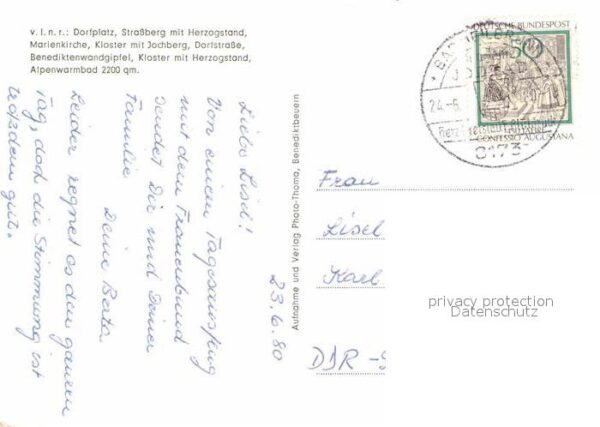 v. l. n. r.: Dorfplatz, Straßberg mit Herzogstand,
Marienkirche, Kloster mit Jochberg, Dorfstraße,
Benediktenwandgipfel, Kloster mit Herzogstand,
Alpenwarmbad 2200 qm.
23.6.80
Liebe Lisel!
Von einem Tagesausflug
mit dem Frauenbund
sendet Dir und Deiner
Familie
Deine Berta
Leider regnet es den ganzen
Tag, doch die Stimmung ist
trotzdem gut.
Aufnahme und Verlag Photo-Thoma, Benediktbeuern
DEUTSCHE BUNDESPOST
50
450 JAHRE
CONFESSIO AUGUSTANA
BAD HEILBRUNN
24.-6.
8173
Frau
Lisel
Karl
DDR-
privacy protection
Datenschutz